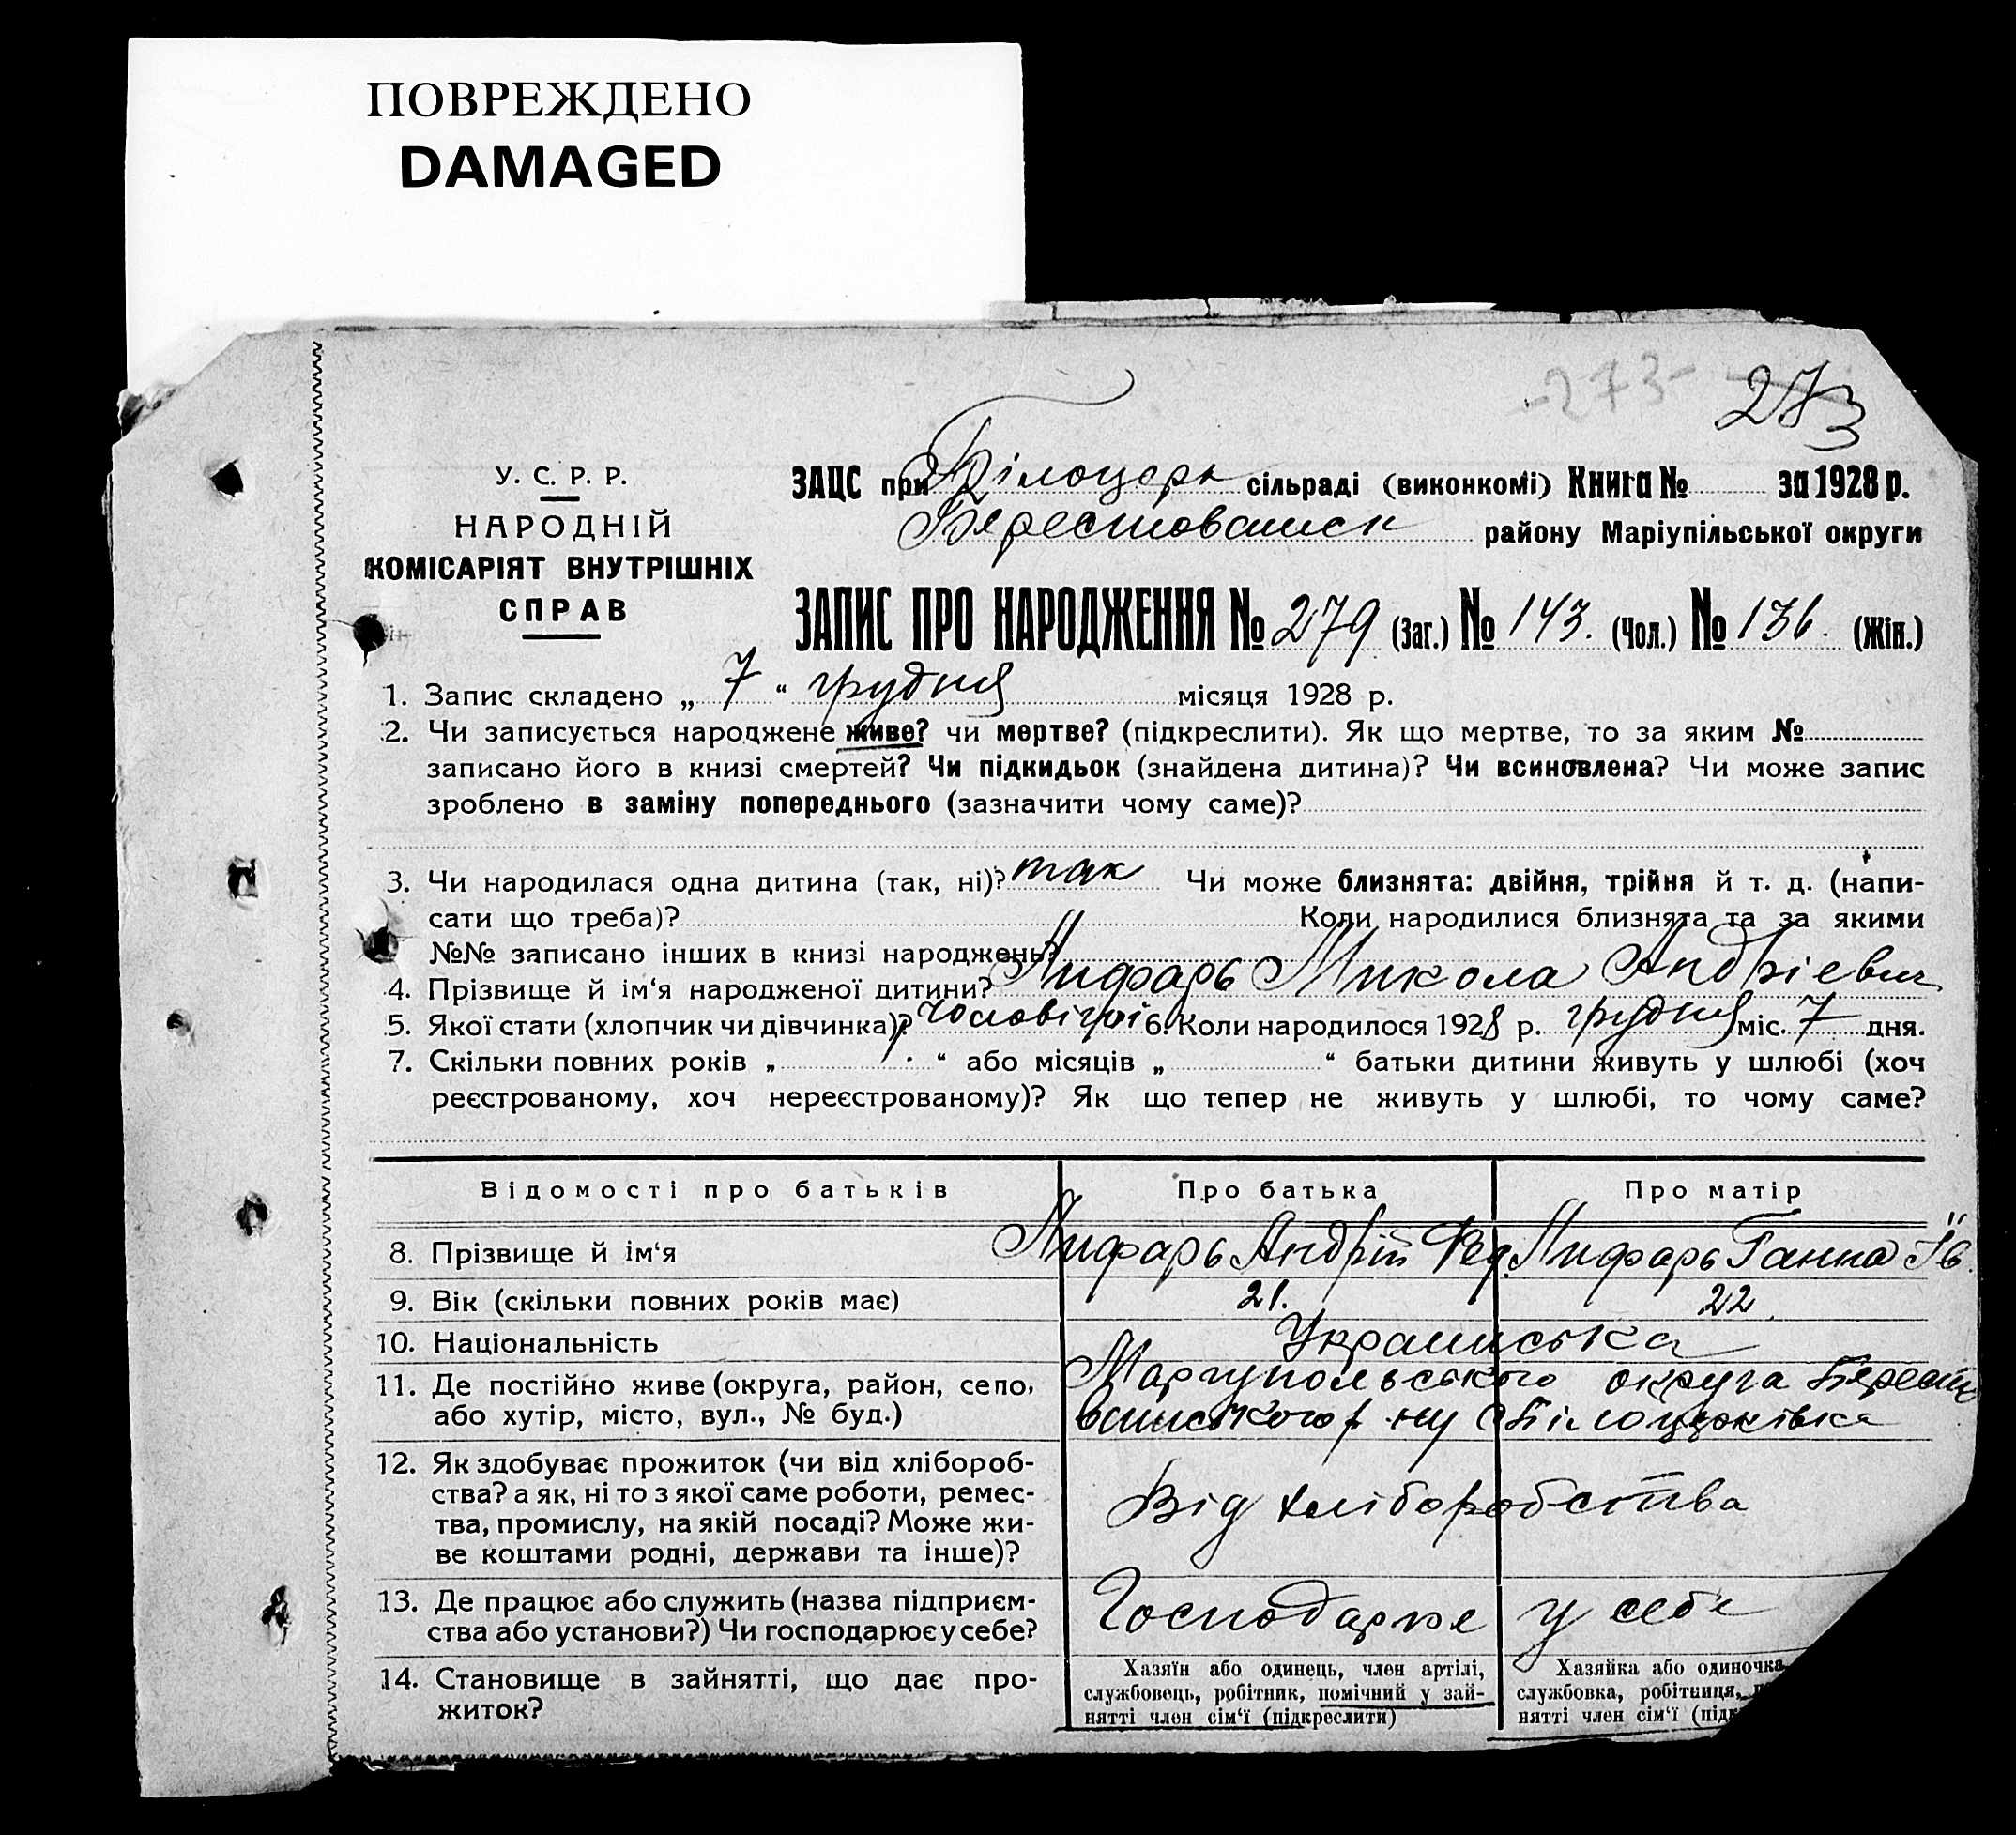 ПОВРЕЖДЕНО
DAMAGED
-273- 273
У. С. Р. Р.
НАРОДНІЙ
КОМІСАРІЯТ ВНУТРІШНІХ
СПРАВ
ЗАЦС при Білоцерк сільраді (виконкомі) Книга № за 1928 р.
Берестованск району Маріупільської округи
ЗАПИС ПРО НАРОДЖЕННЯ № 279 (Заг.) № 143. (Чол.) № 136. (Жін.)
1. Запис складено „ 7 “ грудня місяця 1928 р.
2. Чи записується народжене живе? чи мертве? (підкреслити). Як що мертве, то за яким №
записано його в книзі смертей? Чи підкидьок (знайдена дитина)? Чи всиновлена? Чи може запис
зроблено в заміну попереднього (зазначити чому саме)?
3. Чи народилася одна дитина (так, ні)? так Чи може близнята: двійня, трійня й т. д. (напи-
сати що треба)? Коли народилися близнята та за якими
№№ записано інших в книзі народжень?
4. Прізвище й ім‘я народженої дитини? Лифарь Микола Андріевич
5. Якої стати (хлопчик чи дівчинка)? Чоловічої 6. Коли народилося 1928 р. грудня міс. 7 дня.
7. Скільки повних років „ “ або місяців „ “ батьки дитини живуть у шлюбі (хоч
реєстрованому, хоч нереєстрованому)? Як що тепер не живуть у шлюбі, то чому саме?
Відомості про батьків Про батька Про матір
8. Прізвище й ім‘я Лифарь Андрій Фед. Лифарь Ганна Їв.
9. Вік (скільки повних років має) 21. 22.
10. Національність Украинська
11. Де постійно живе (округа, район, село, Маріупольського округа Берест
або хутір, місто, вул., № буд.) ванського р-ну с. Білоцерківка
12. Як здобуває прожиток (чи від хлібороб-
ства? а як, ні то з якої саме роботи, ремес-
тва, промислу, на якій посаді? Може жи-
ве коштами родні, держави та інше)?
Від хліборобства
13. Де працює або служить (назва підприєм-
ства або установи?) Чи господарює у себе?
Господарює у себе
14. Становище в зайнятті, що дає про-
житок?
Хазяїн або одинець, член артілі,
службовець, робітник, помічний у зай-
нятті член сім‘ї (підкреслити)
Хазяйка або одиночка
службовка, робітниця,
нятті член сім‘ї (підк